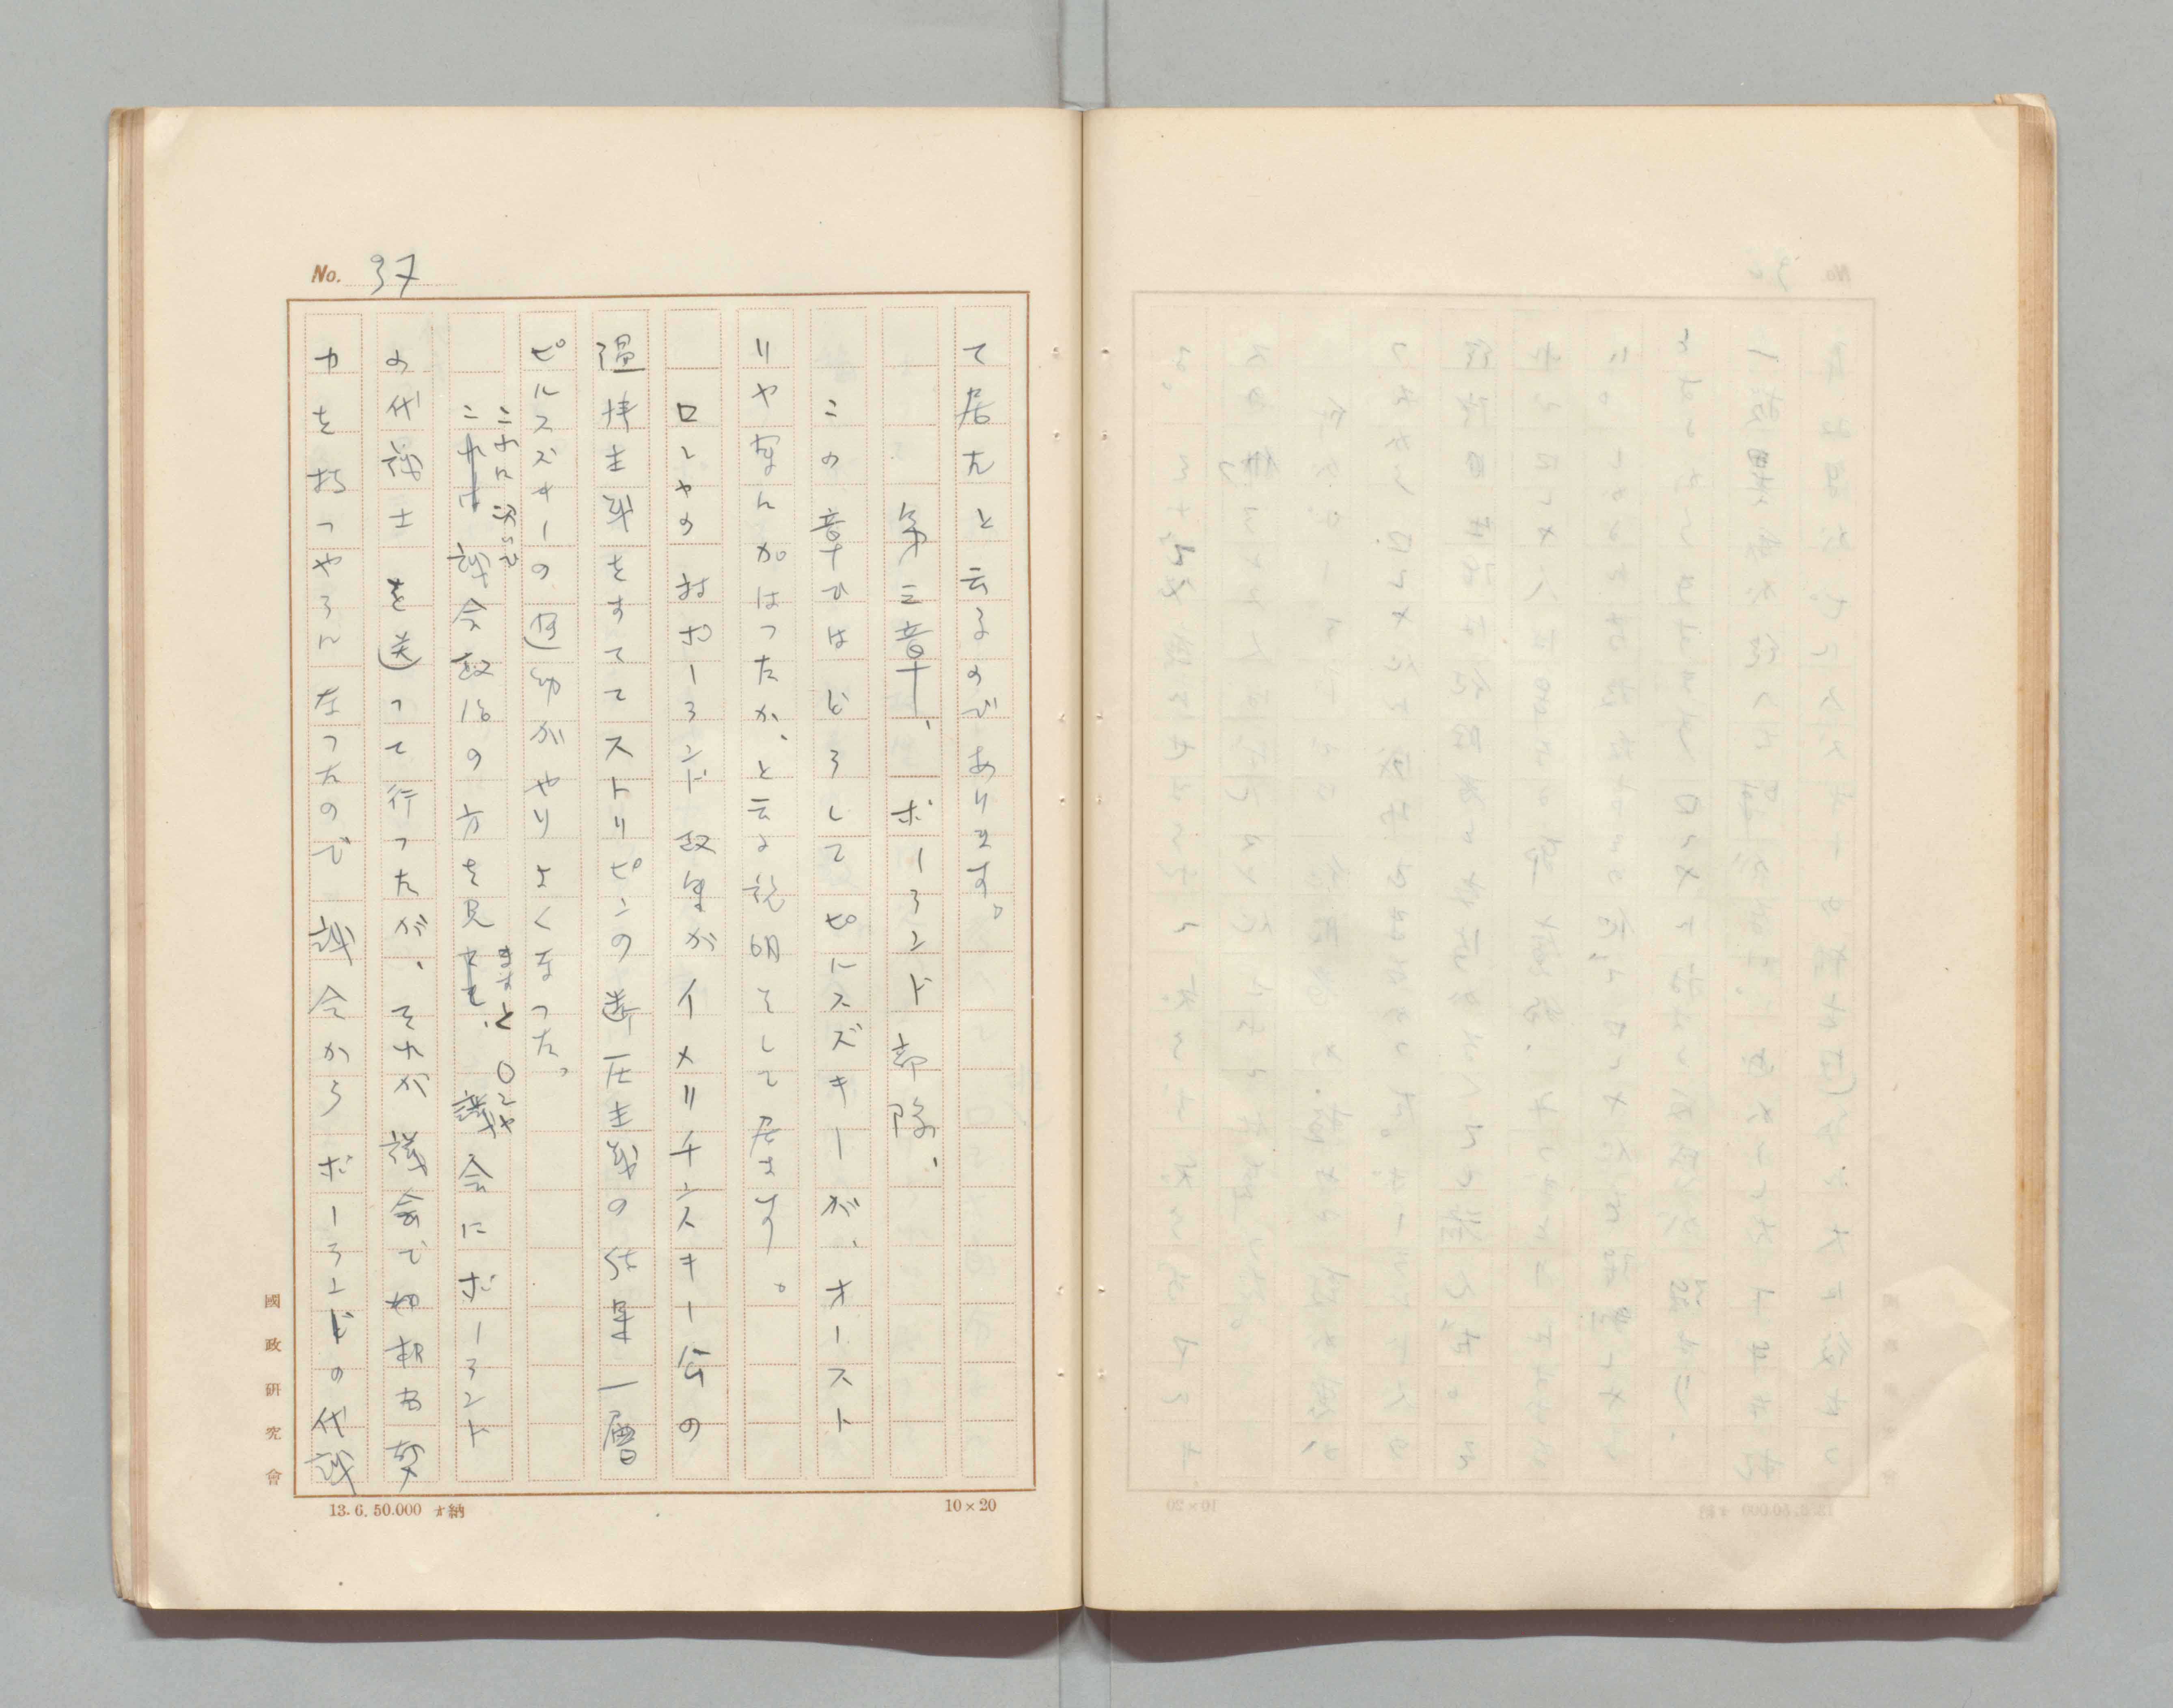 No. 37
て居たと云うのであります。
第三章、ポーランド部隊、
この章ではどうしてピルスズキーが、オースト
リヤ軍に加はつたか、と云う説明をして居ます。
ロシヤの対ポーランド政策がイメリチンスキー公の
温情主義をすててストリピンの断圧主義の結果一層
ピルスズキーの運動がやりよくなつた。
これに次いで議会政治の方を見ますと、ロシヤ議会にポーランド
の代議士を送つて行つたが、それが議会で相当勢
力を持つやうになつたので議会からポーランドの代議
國政研究會
13. 6. 50.000 納
10×20